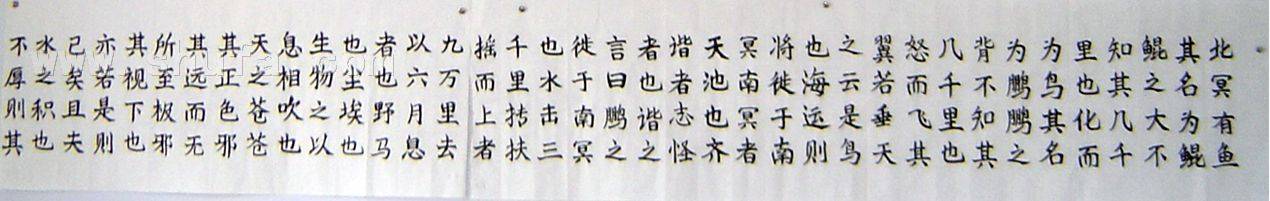 北冥有鱼
其名为鲲
鲲之大不
知其几千
里也化而
为鸟其名
为鹏鹏之
背不知其
几千里也
怒而飞其
翼若垂天
之云是鸟
也海运则
将徙于南
冥南冥者
天池也齐
谐者志怪
者也谐之
言曰鹏之
徙于南冥
也水击三
千里抟扶
摇而上者
九万里去
以六月息
者也野马
也尘埃也
生物之以
息相吹也
天之苍苍
其正色邪
其远而无
所至极邪
其视下也
亦若是则
已矣且夫
水之积也
不厚则其